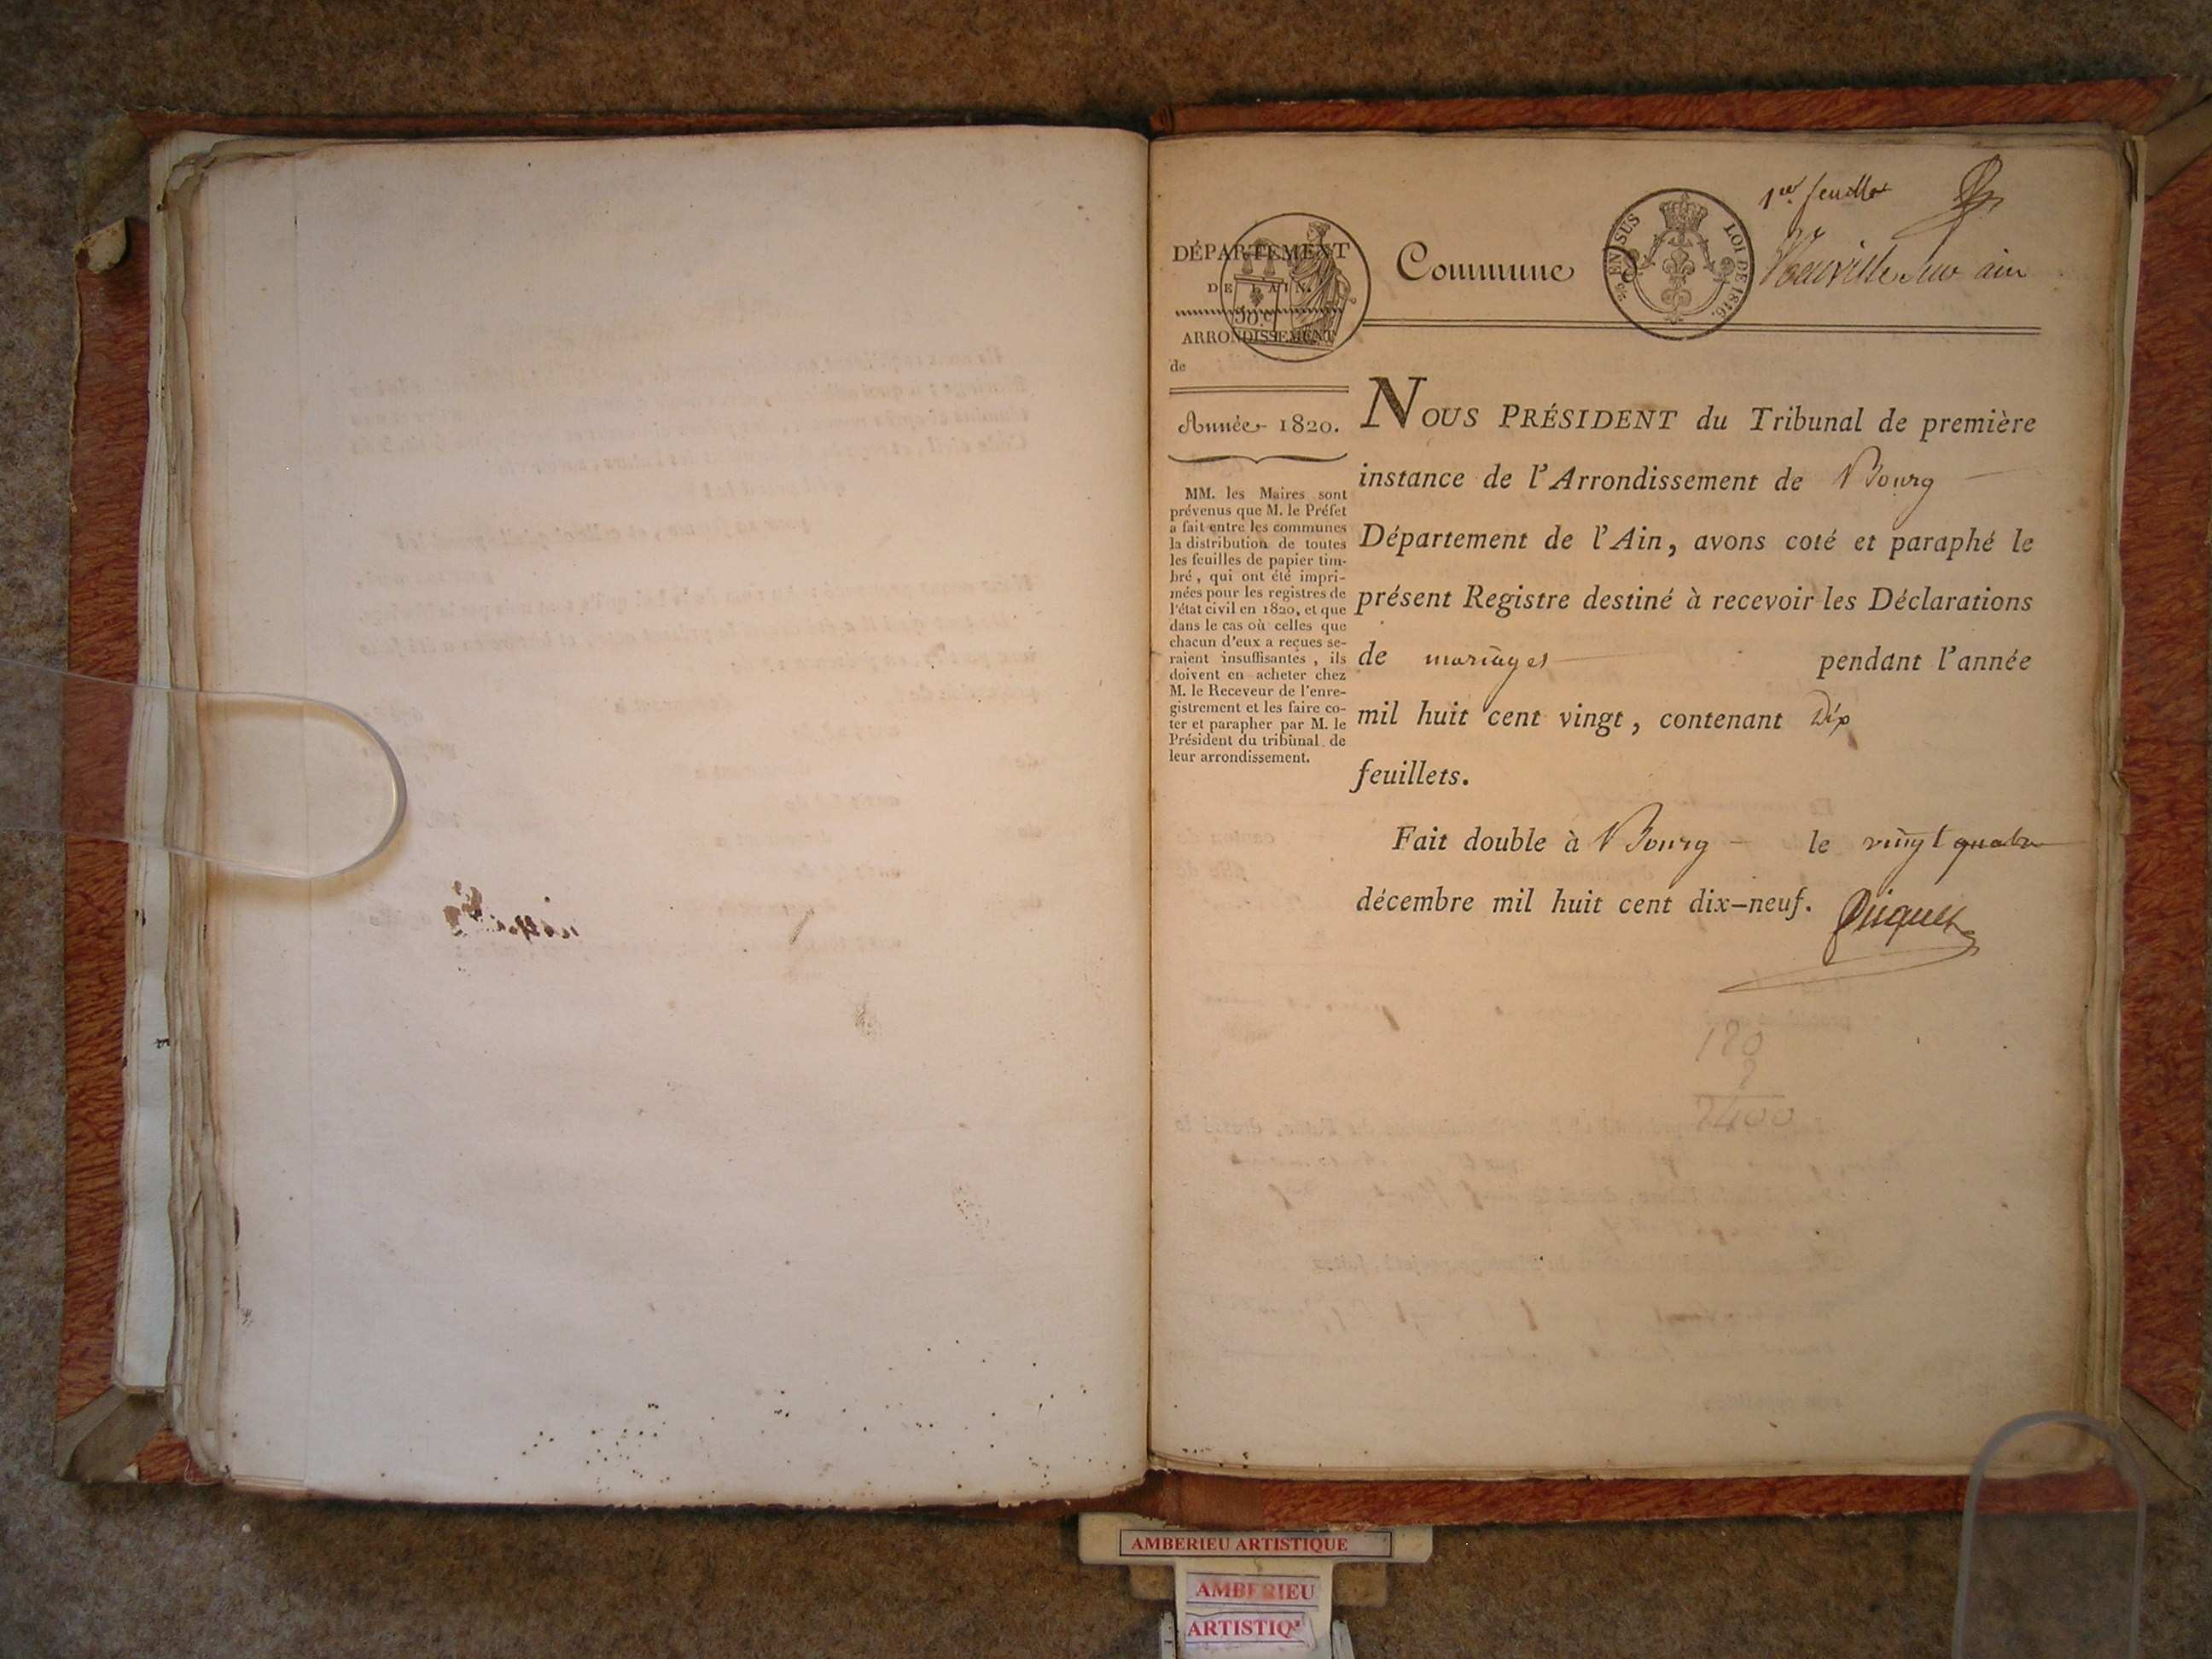 1er feuillet
DÉPARTEMENT
DE L'AIN.
50 c
ARRONDISSEMENT
de
Commune
EN SUS
LOI DE 1816.
Neuville sur ain
Année 1820.
MM. les Maires sont
prévenus que M. le Préfet
a fait entre les communes
la distribution de toutes
les feuilles de papier tim-
bré, qui ont été impri-
mées pour les registres de
l'état civil en 1820, et que
dans le cas où celles que
chacun d'eux a reçues se-
raient insuffisantes, ils
doivent en acheter chez
M. le Receveur de l'enre-
gistrement et les faire co-
ter et parapher par M. le
Président du tribunal de
leur arrondissement.
NOUS PRÉSIDENT du Tribunal de première
instance de l'Arrondissement de Bourg
Département de l'Ain, avons coté et paraphé le
présent Registre destiné à recevoir les Déclarations
de mariages pendant l'année
mil huit cent vingt, contenant Dix
feuillets.
Fait double à Bourg le vingt quatre
décembre mil huit cent dix-neuf.
AMBERIEU ARTISTIQUE
AMBERIEU
ARTISTIQ